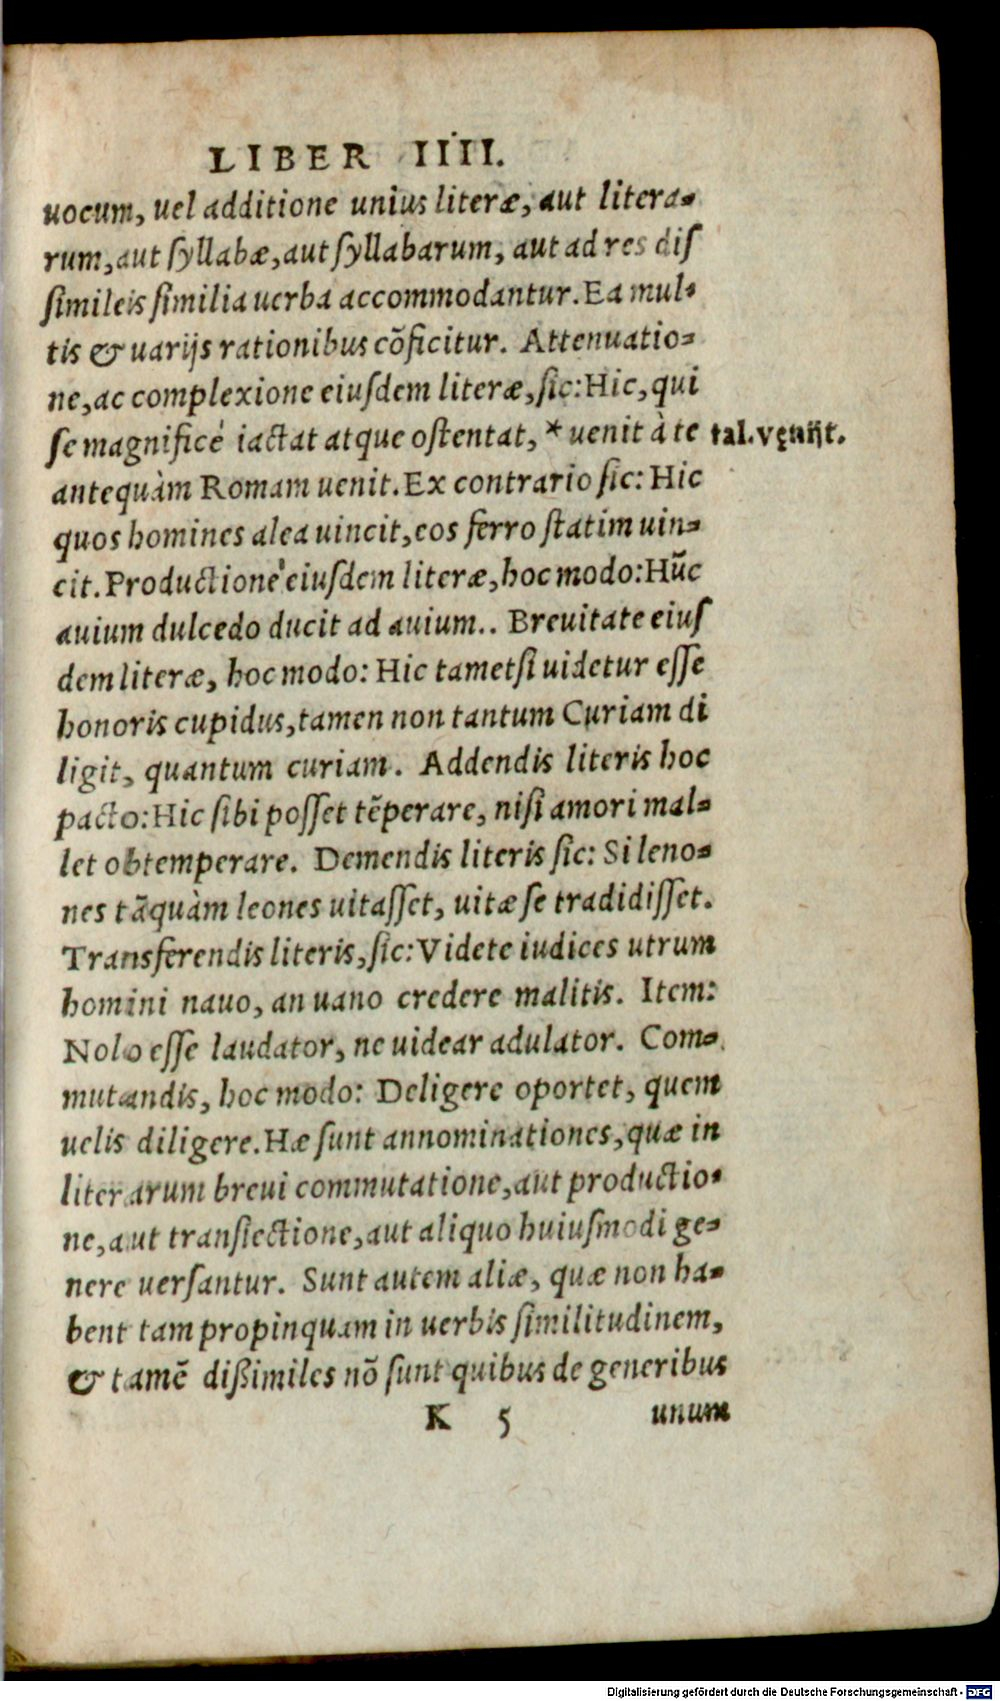 LIBER IIII.
uocum, uel additione unius literæ, aut litera-
rum, aut syllabæ, aut syllabarum, aut ad res dis
simileis similia uerba accommodantur. Ea mul-
tis & uarijs rationibus cõficitur. Attenuatio-
ne, ac complexione eiusdem literæ, sic: Hic, qui
se magnificè iactat atque ostentat, * uenit à te
tal. veniit.
antequàm Romam uenit. Ex contrario sic: Hic
quos homines alea uincit, eos ferro statim uin-
cit. Productione eiusdem literæ, hoc modo: Hũc
auium dulcedo ducit ad auium.. Breuitate eius
dem literæ, hoc modo: Hic tametsi uidetur esse
honoris cupidus, tamen non tantum Curiam di
ligit, quantum curiam. Addendis literis hoc
pacto: Hic sibi posset tẽperare, nisi amori mal-
let obtemperare. Demendis literis sic: Si leno-
nes tãquàm leones uitasset, uitæ se tradidisset.
Transferendis literis, sic: Videte iudices utrum
homini nauo, an uano credere malitis. Item:
Nolo esse laudator, ne uidear adulator. Com-
mutandis, hoc modo: Deligere oportet, quem
uelis diligere. Hæ sunt annominationes, quæ in
literarum breui commutatione, aut productio-
ne, aut transiectione, aut aliquo huiusmodi ge-
nere uersantur. Sunt autem aliæ, quæ non ha-
bent tam propinquam in uerbis similitudinem,
& tamẽ dißimiles nõ sunt quibus de generibus
K 5 unum
Digitalisierung gefördert durch die Deutsche Forschungsgemeinschaft - DFG